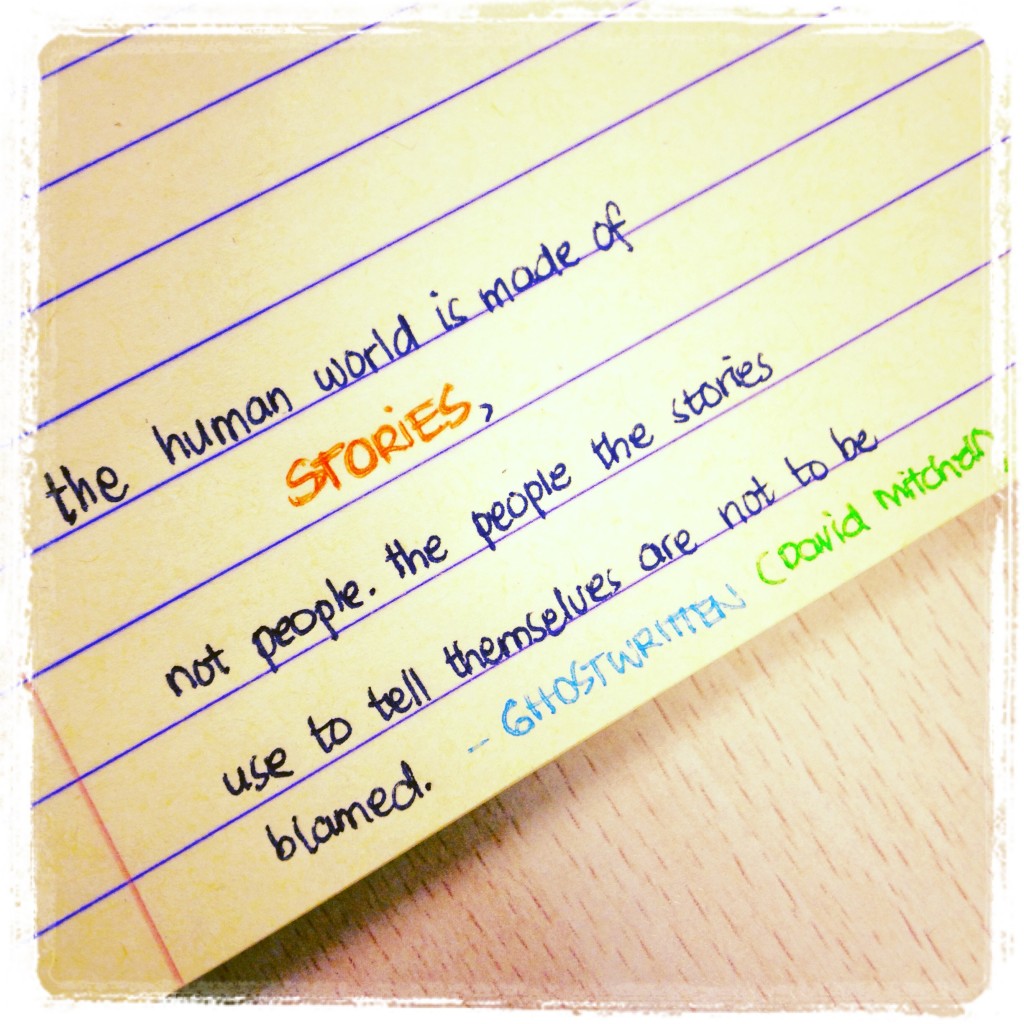 the human world is made of
STORiES,
not people. the people the stories
use to tell themselves are not to be
blamed. - GHOSTWRITTEN (David mitchell)